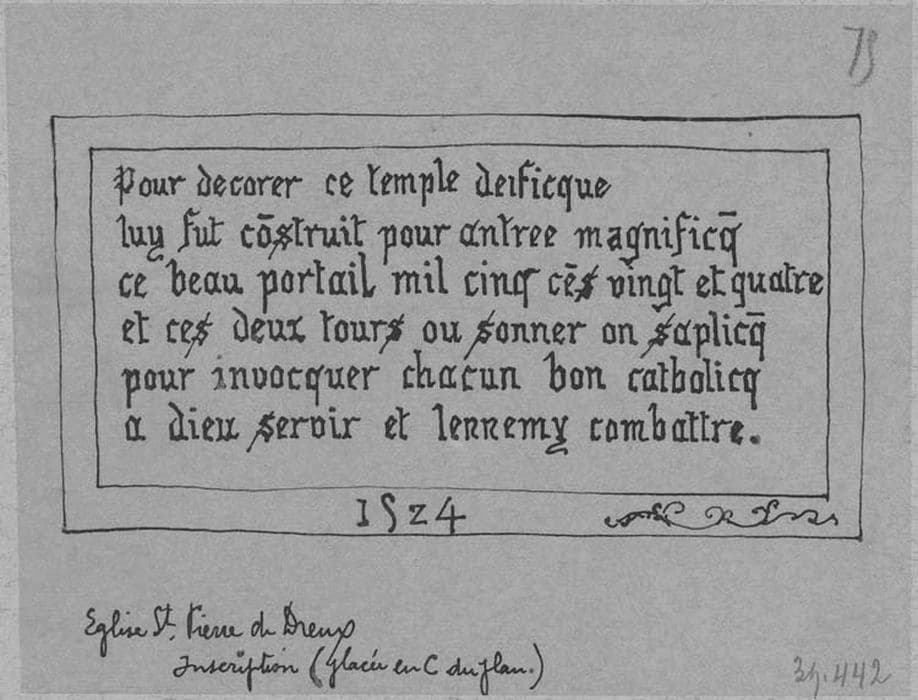 75
Pour decorer ce temple deificque
luy fut cōstruit pour antree magnificq̄
ce beau portail mil cinq cēs vingt et quatre
et ces deux tours ou sonner on saplicq̄
pour invocquer chacun bon catholicq
a dieu servir et lennemy combattre.
1524
Eglise St. Pierre de Dreux
Inscription (placée en C du plan.)
34.442